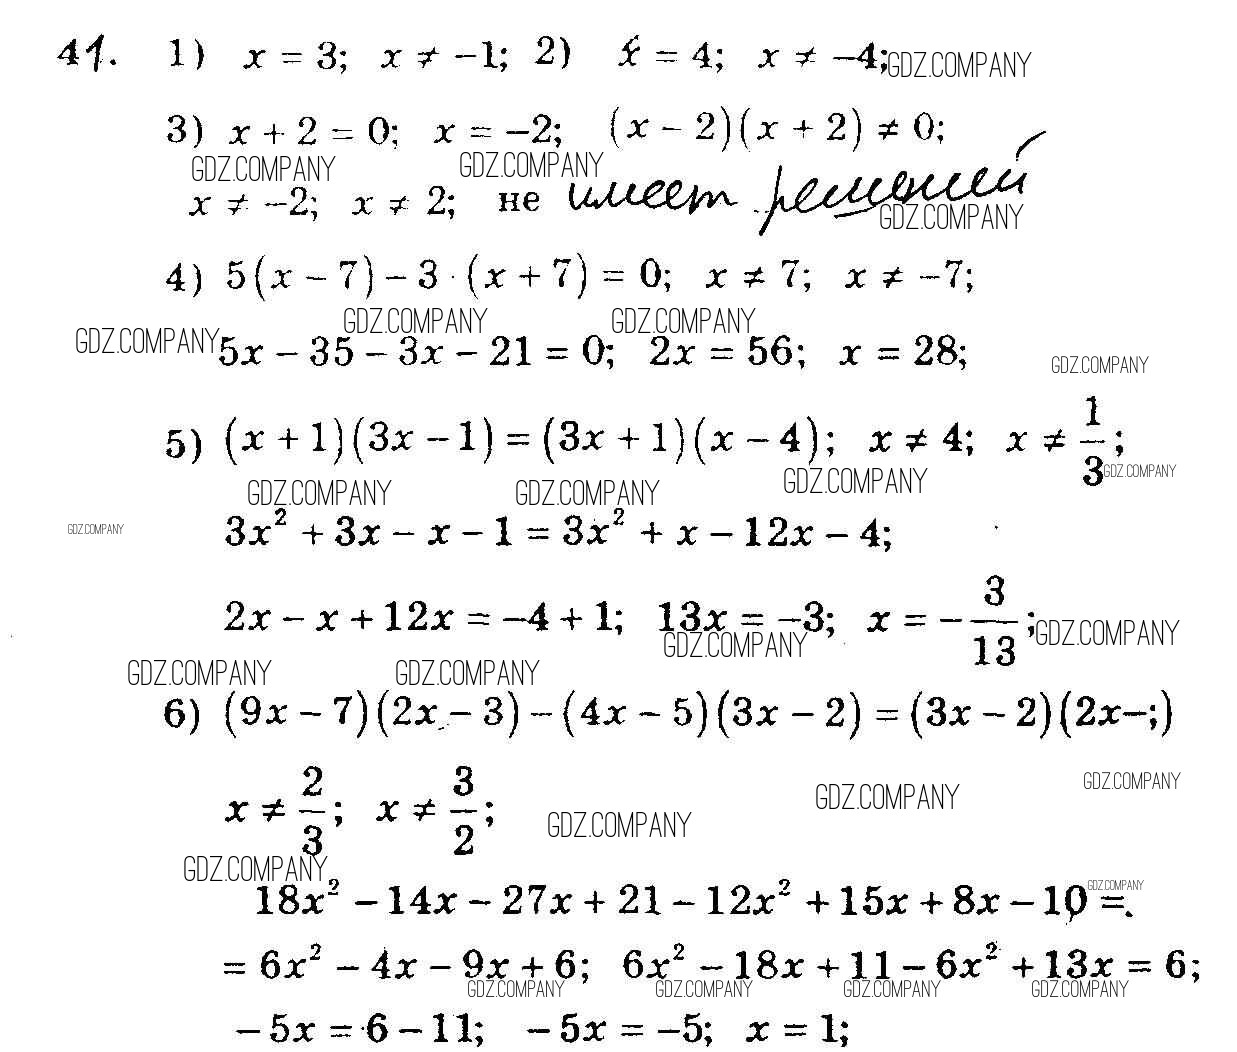 41. 1) x = 3; x ≠ −1; 2) x = 4; x ≠ −4; GDZ.COMPANY
3) x + 2 = 0; x = −2; (x − 2)(x + 2) ≠ 0;
GDZ.COMPANY GDZ.COMPANY
x ≠ −2; x ≠ 2; не имеет решений
GDZ.COMPANY
4) 5(x − 7) − 3 · (x + 7) = 0; x ≠ 7; x ≠ −7;
GDZ.COMPANY GDZ.COMPANY GDZ.COMPANY
5x − 35 − 3x − 21 = 0; 2x = 56; x = 28;
GDZ.COMPANY
5) (x + 1)(3x − 1) = (3x + 1)(x − 4); x ≠ 4; x ≠ 1/3;
GDZ.COMPANY GDZ.COMPANY GDZ.COMPANY GDZ.COMPANY
GDZ.COMPANY
3x² + 3x − x − 1 = 3x² + x − 12x − 4;
2x − x + 12x = −4 + 1; 13x = −3; x = −3/13;
GDZ.COMPANY GDZ.COMPANY
GDZ.COMPANY GDZ.COMPANY
6) (9x − 7)(2x − 3) − (4x − 5)(3x − 2) = (3x − 2)(2x−;)
x ≠ 2/3; x ≠ 3/2;
GDZ.COMPANY GDZ.COMPANY GDZ.COMPANY
GDZ.COMPANY GDZ.COMPANY
18x² − 14x − 27x + 21 − 12x² + 15x + 8x − 10 =
= 6x² − 4x − 9x + 6; 6x² − 18x + 11 − 6x² + 13x = 6;
GDZ.COMPANY GDZ.COMPANY GDZ.COMPANY GDZ.COMPANY
−5x = 6 − 11; −5x = −5; x = 1;